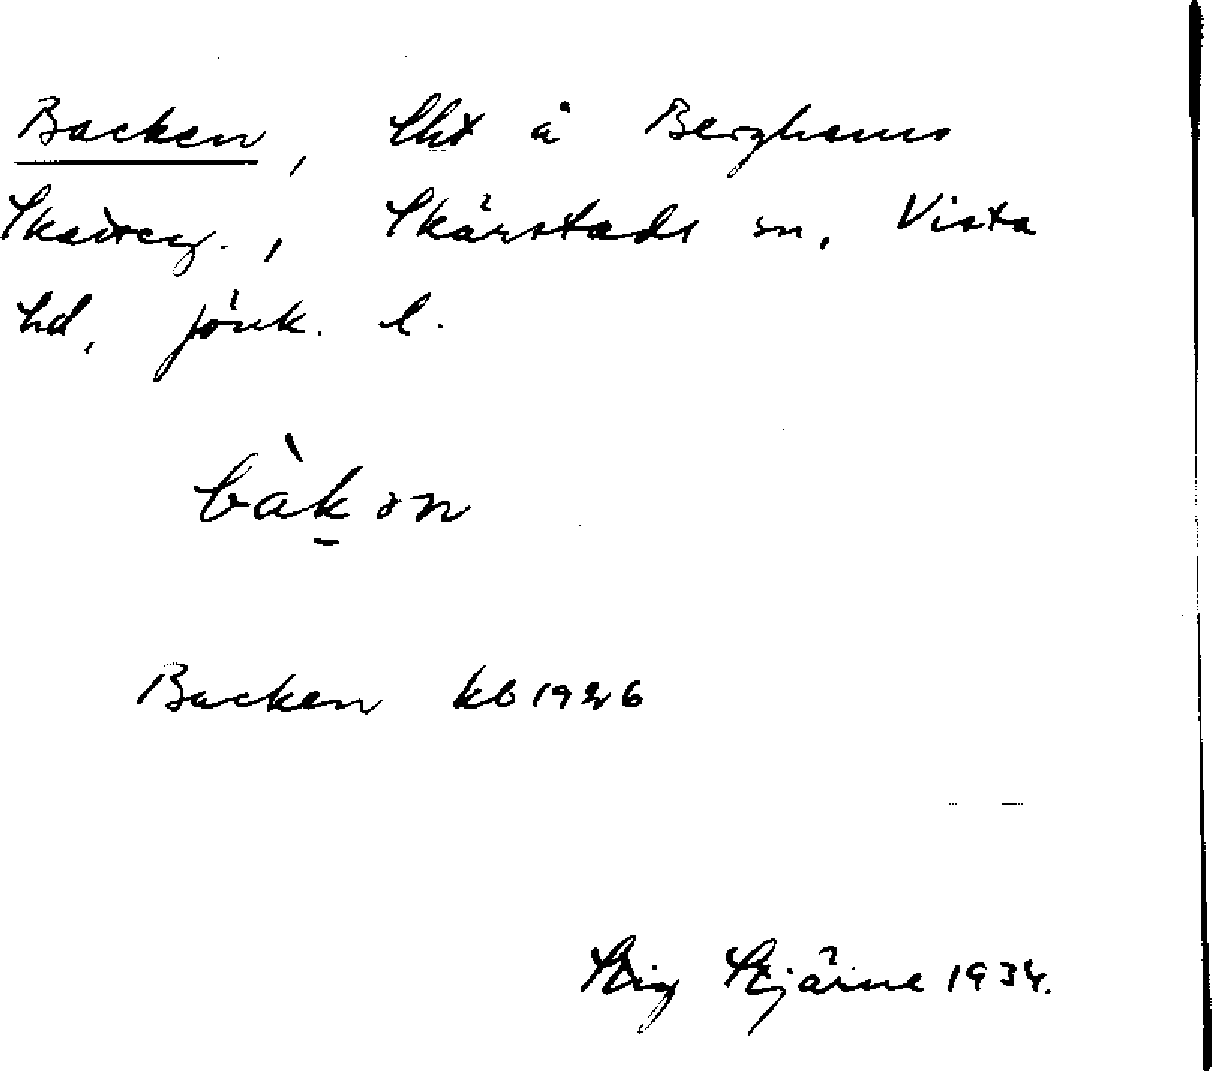 Backen, lht å Berghems
Skatteg., Skärstads sn, Vista
hd, Jönk. l.
bàkən
Backen kb 1926
Stig Stjärne 1934.